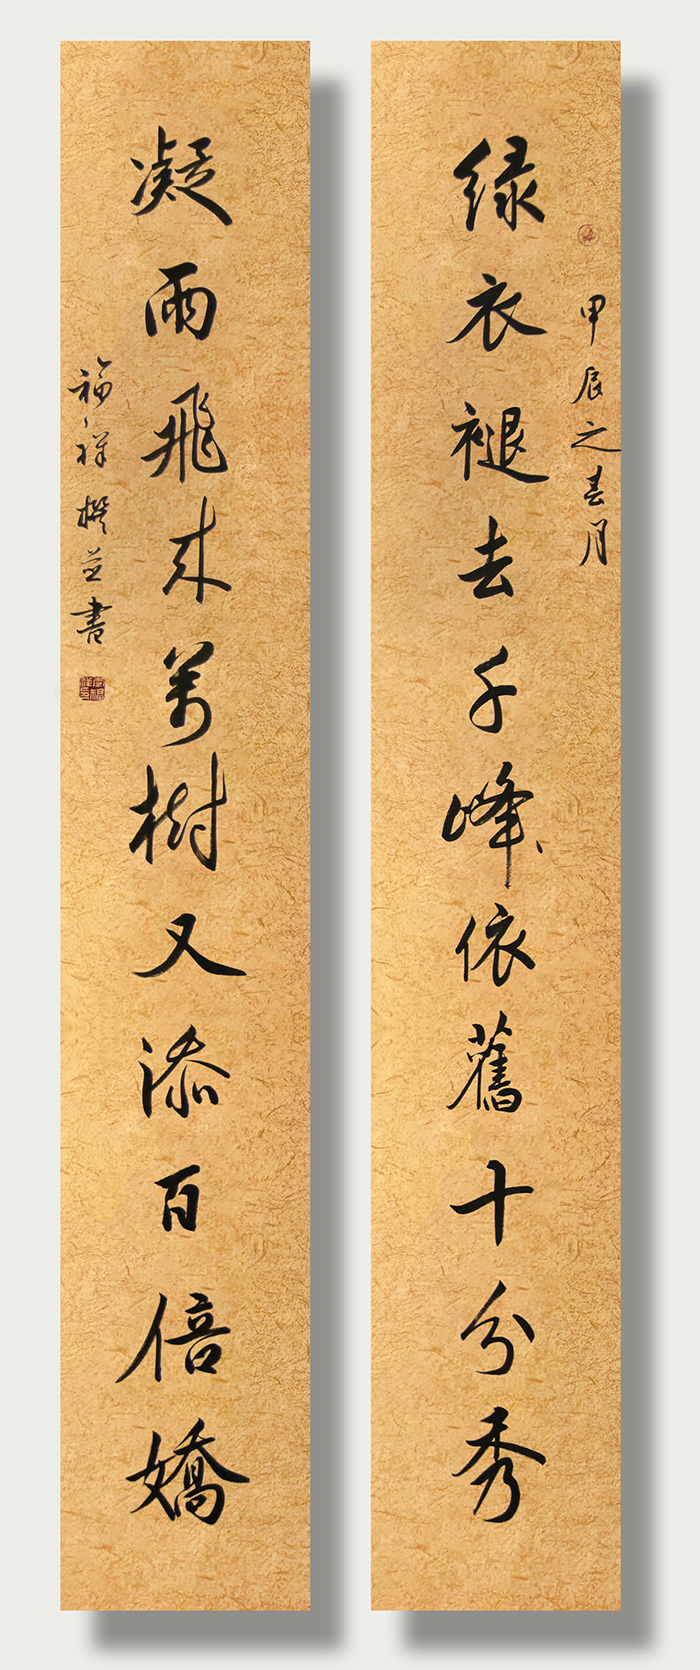 甲辰之春月
绿衣褪去千峰依舊十分秀
凝雨飛来萬樹又添百倍嬌
福祥撰並書